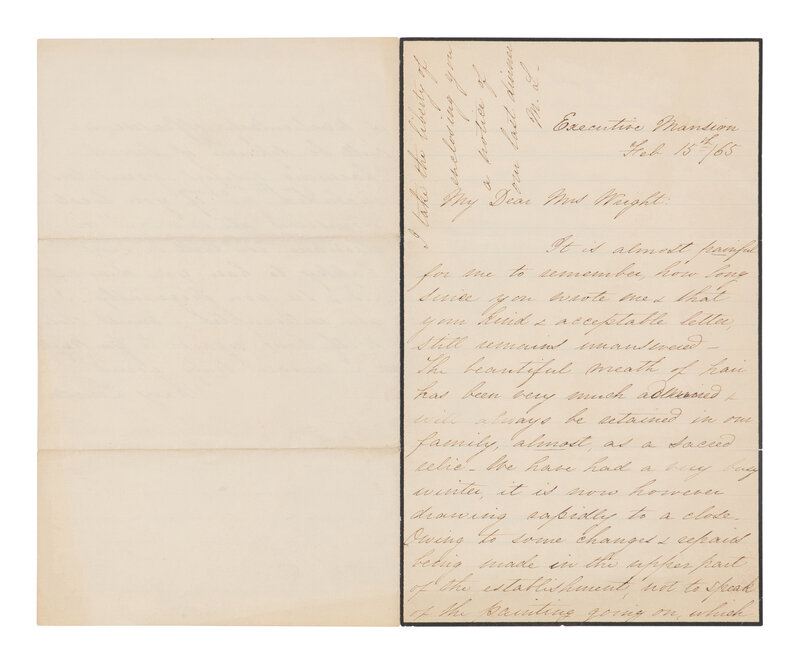 Executive Mansion
Feb 15th/65
My Dear Mrs Wright:
It is almost painful
for me to remember, how long
since you wrote me & that
your kind & acceptable letter,
still remains unanswered –
The beautiful wreath of hair
has been very much admired &
will always be retained in our
family, almost, as a sacred
relic – We have had a very busy
winter, it is now however
drawing rapidly to a close –
Owing to some changes & repairs
being made in the upper part
of the establishment, not to speak
of the painting going on, which
I take the liberty of
enclosing you
a notice of
our last dinner
M. L –